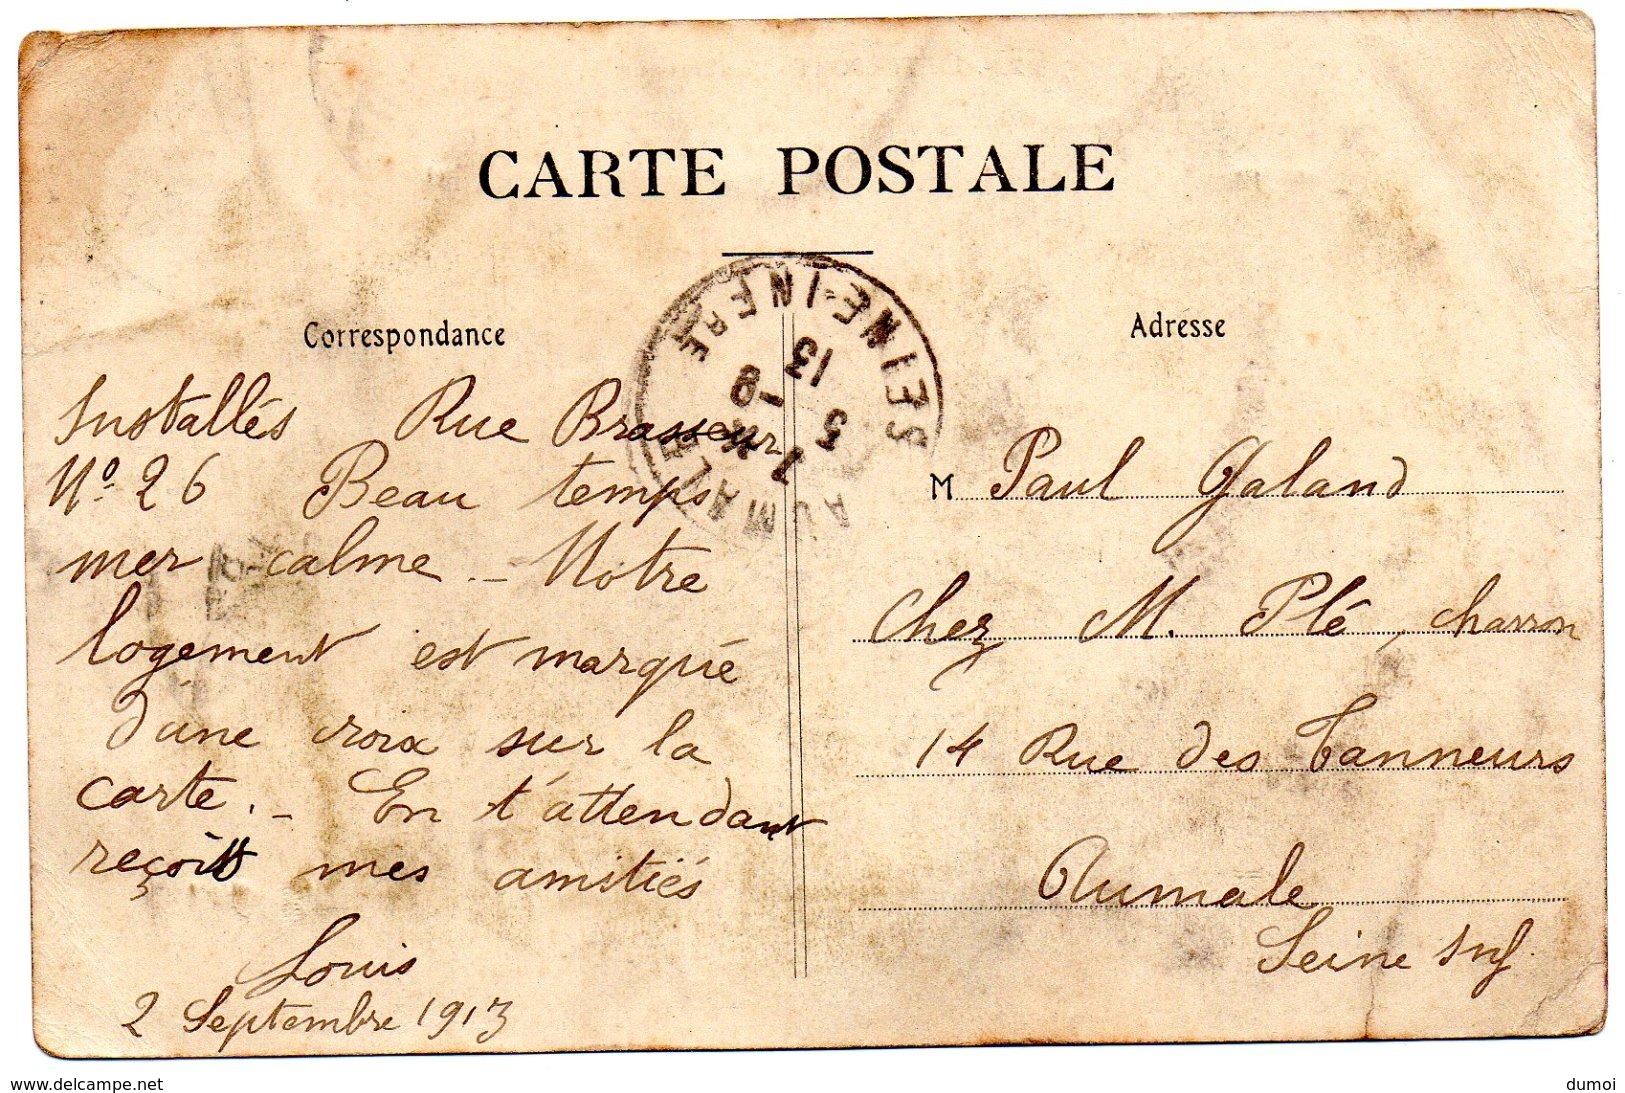 CARTE POSTALE
Correspondance
Installés Rue Brasseur
No. 26 Beau temps
mer calme. - Notre
logement est marqué
d'une croix sur la
carte. - En t'attendant
reçois mes amitiés
Louis
2 Septembre 1913
AUMALE
SEINE-INFRE
5 - 9
13
Adresse
M Paul Galand
Chez M. Plé, charron
14 Rue des Tanneurs
Aumale
Seine Inf.
www.delcampe.net
dumoi